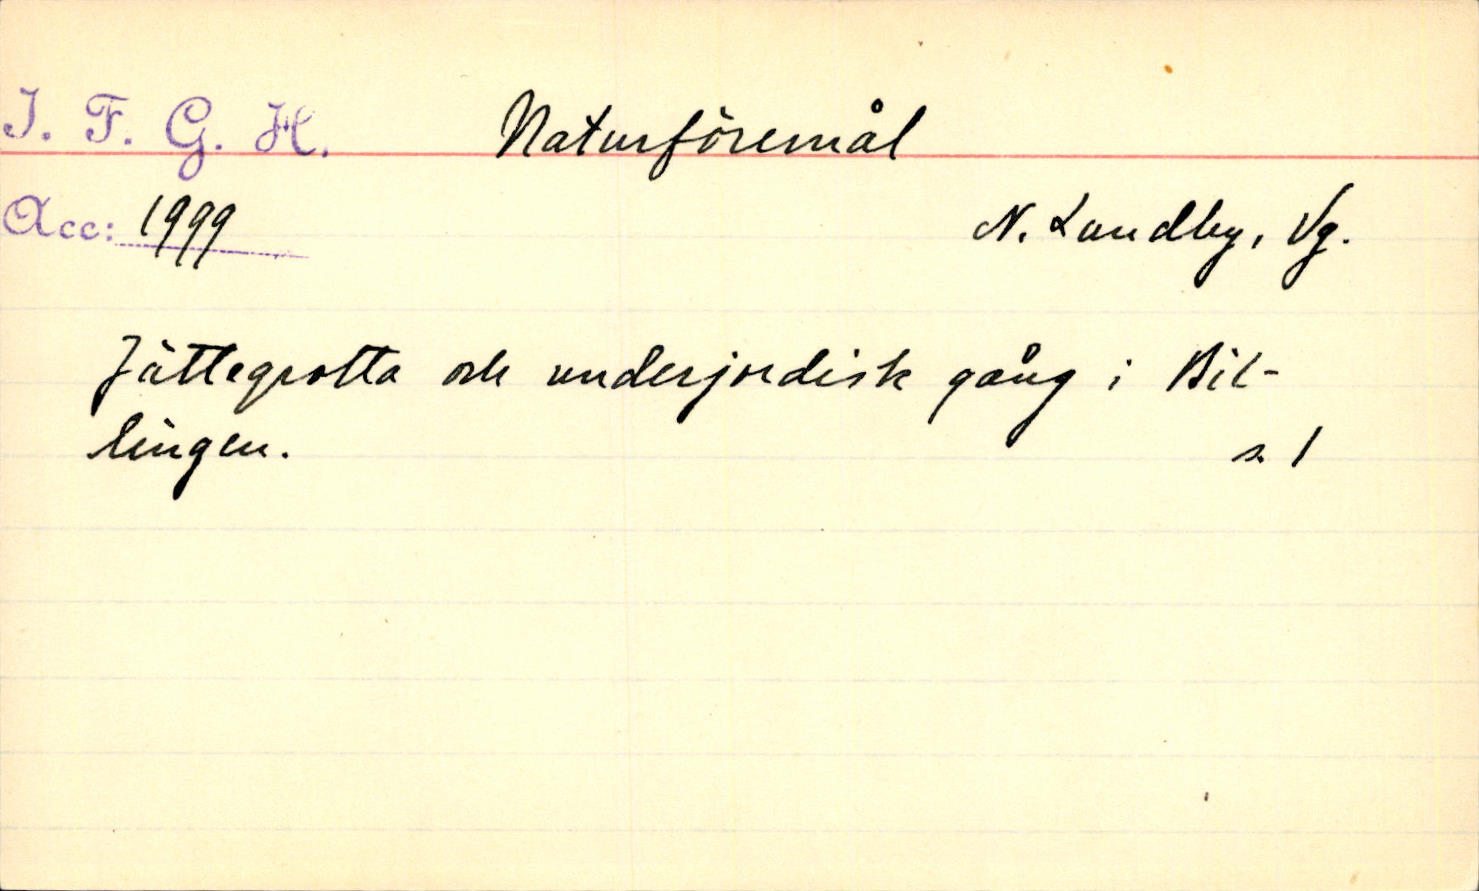 I. F. G. H. Naturföremål
Acc: 1999 N. Lundby, Vg.
Jättegrotta och underjordisk gång i Bil-
lingen. s. 1